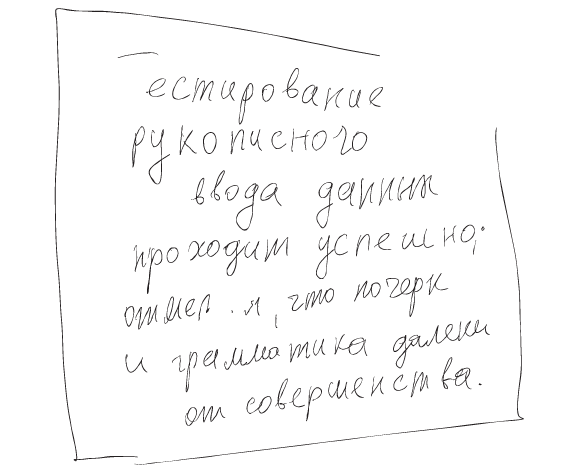 Тестирование
рукописного
ввода данных
проходит успешно;
отмел я, что почерк
и грамматика далеки
от совершенства.